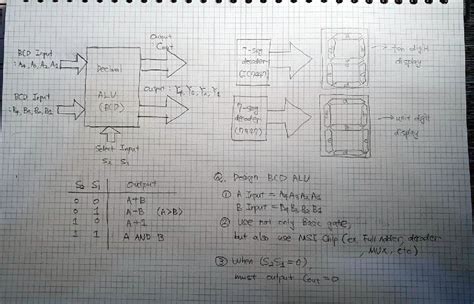 BCD Input
: A4, A3, A2, A1
BCD Input
: B4, B3, B2, B1
Decimal
ALU
(BCD)
Output
Cout
Output : Y4, Y3, Y2, Y1
Select Input
S2 S1
7-seg
decoder
7-seg
decoder
ten digit
display
unit digit
display
S2 S1 Output
0 0 A+B
0 1 A-B (A>B)
1 0 A+1
1 1 A AND B
Q. Design BCD ALU
① A Input = A4 A3 A2 A1
B Input = B4 B3 B2 B1
② Use not only Basic gate,
but also use MSI Chip (ex. Full Adder, decoder,
MUX, etc)
③ When (S2S1=0)
must output Cout=0